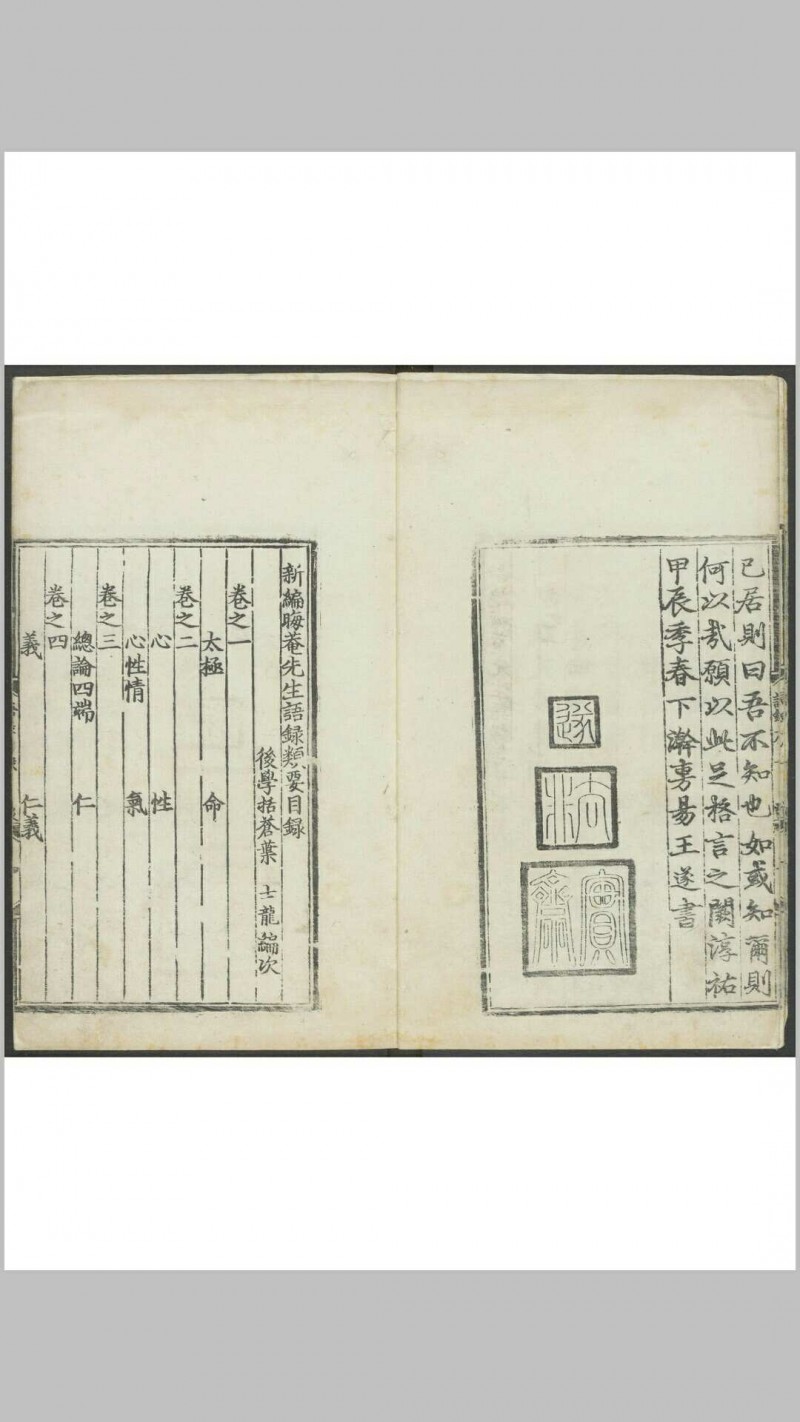 已居則曰吾不知也如或知爾則
何以㢤願以此足格言之闕淳祐
甲辰季春下澣
王遂書
遂
實齋
新編晦菴先生語録類要目録
後學括蒼葉 士龍 編次
卷之一
太極 命
卷之二
心 性
心性情 氣
卷之三
總論四端 仁
卷之四
義 仁義